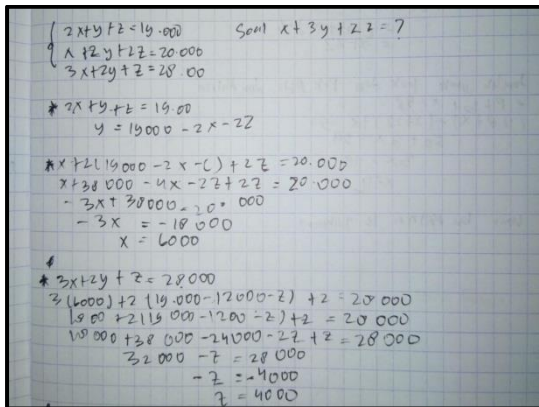 2x+y+z=19.000 Soal x+3y+2z=?
x+2y+2z=20.000
3x+2y+z=28.00
* 2x+y+z=19.00
y=19000-2x-2z
* x+2(19000-2x-()+2z=20.000
x+38000-4x-2z+2z=20.000
-3x+38000=20.000
-3x=-18000
x=6000
* 3x+2y+z=28.000
3(6000)+2(19.000-12000-z)+z=28000
1800+2(19000-1200-z)+z=28000
18000+38000-24000-2z+z=28000
32000-z=28000
-z=-4000
z=4000